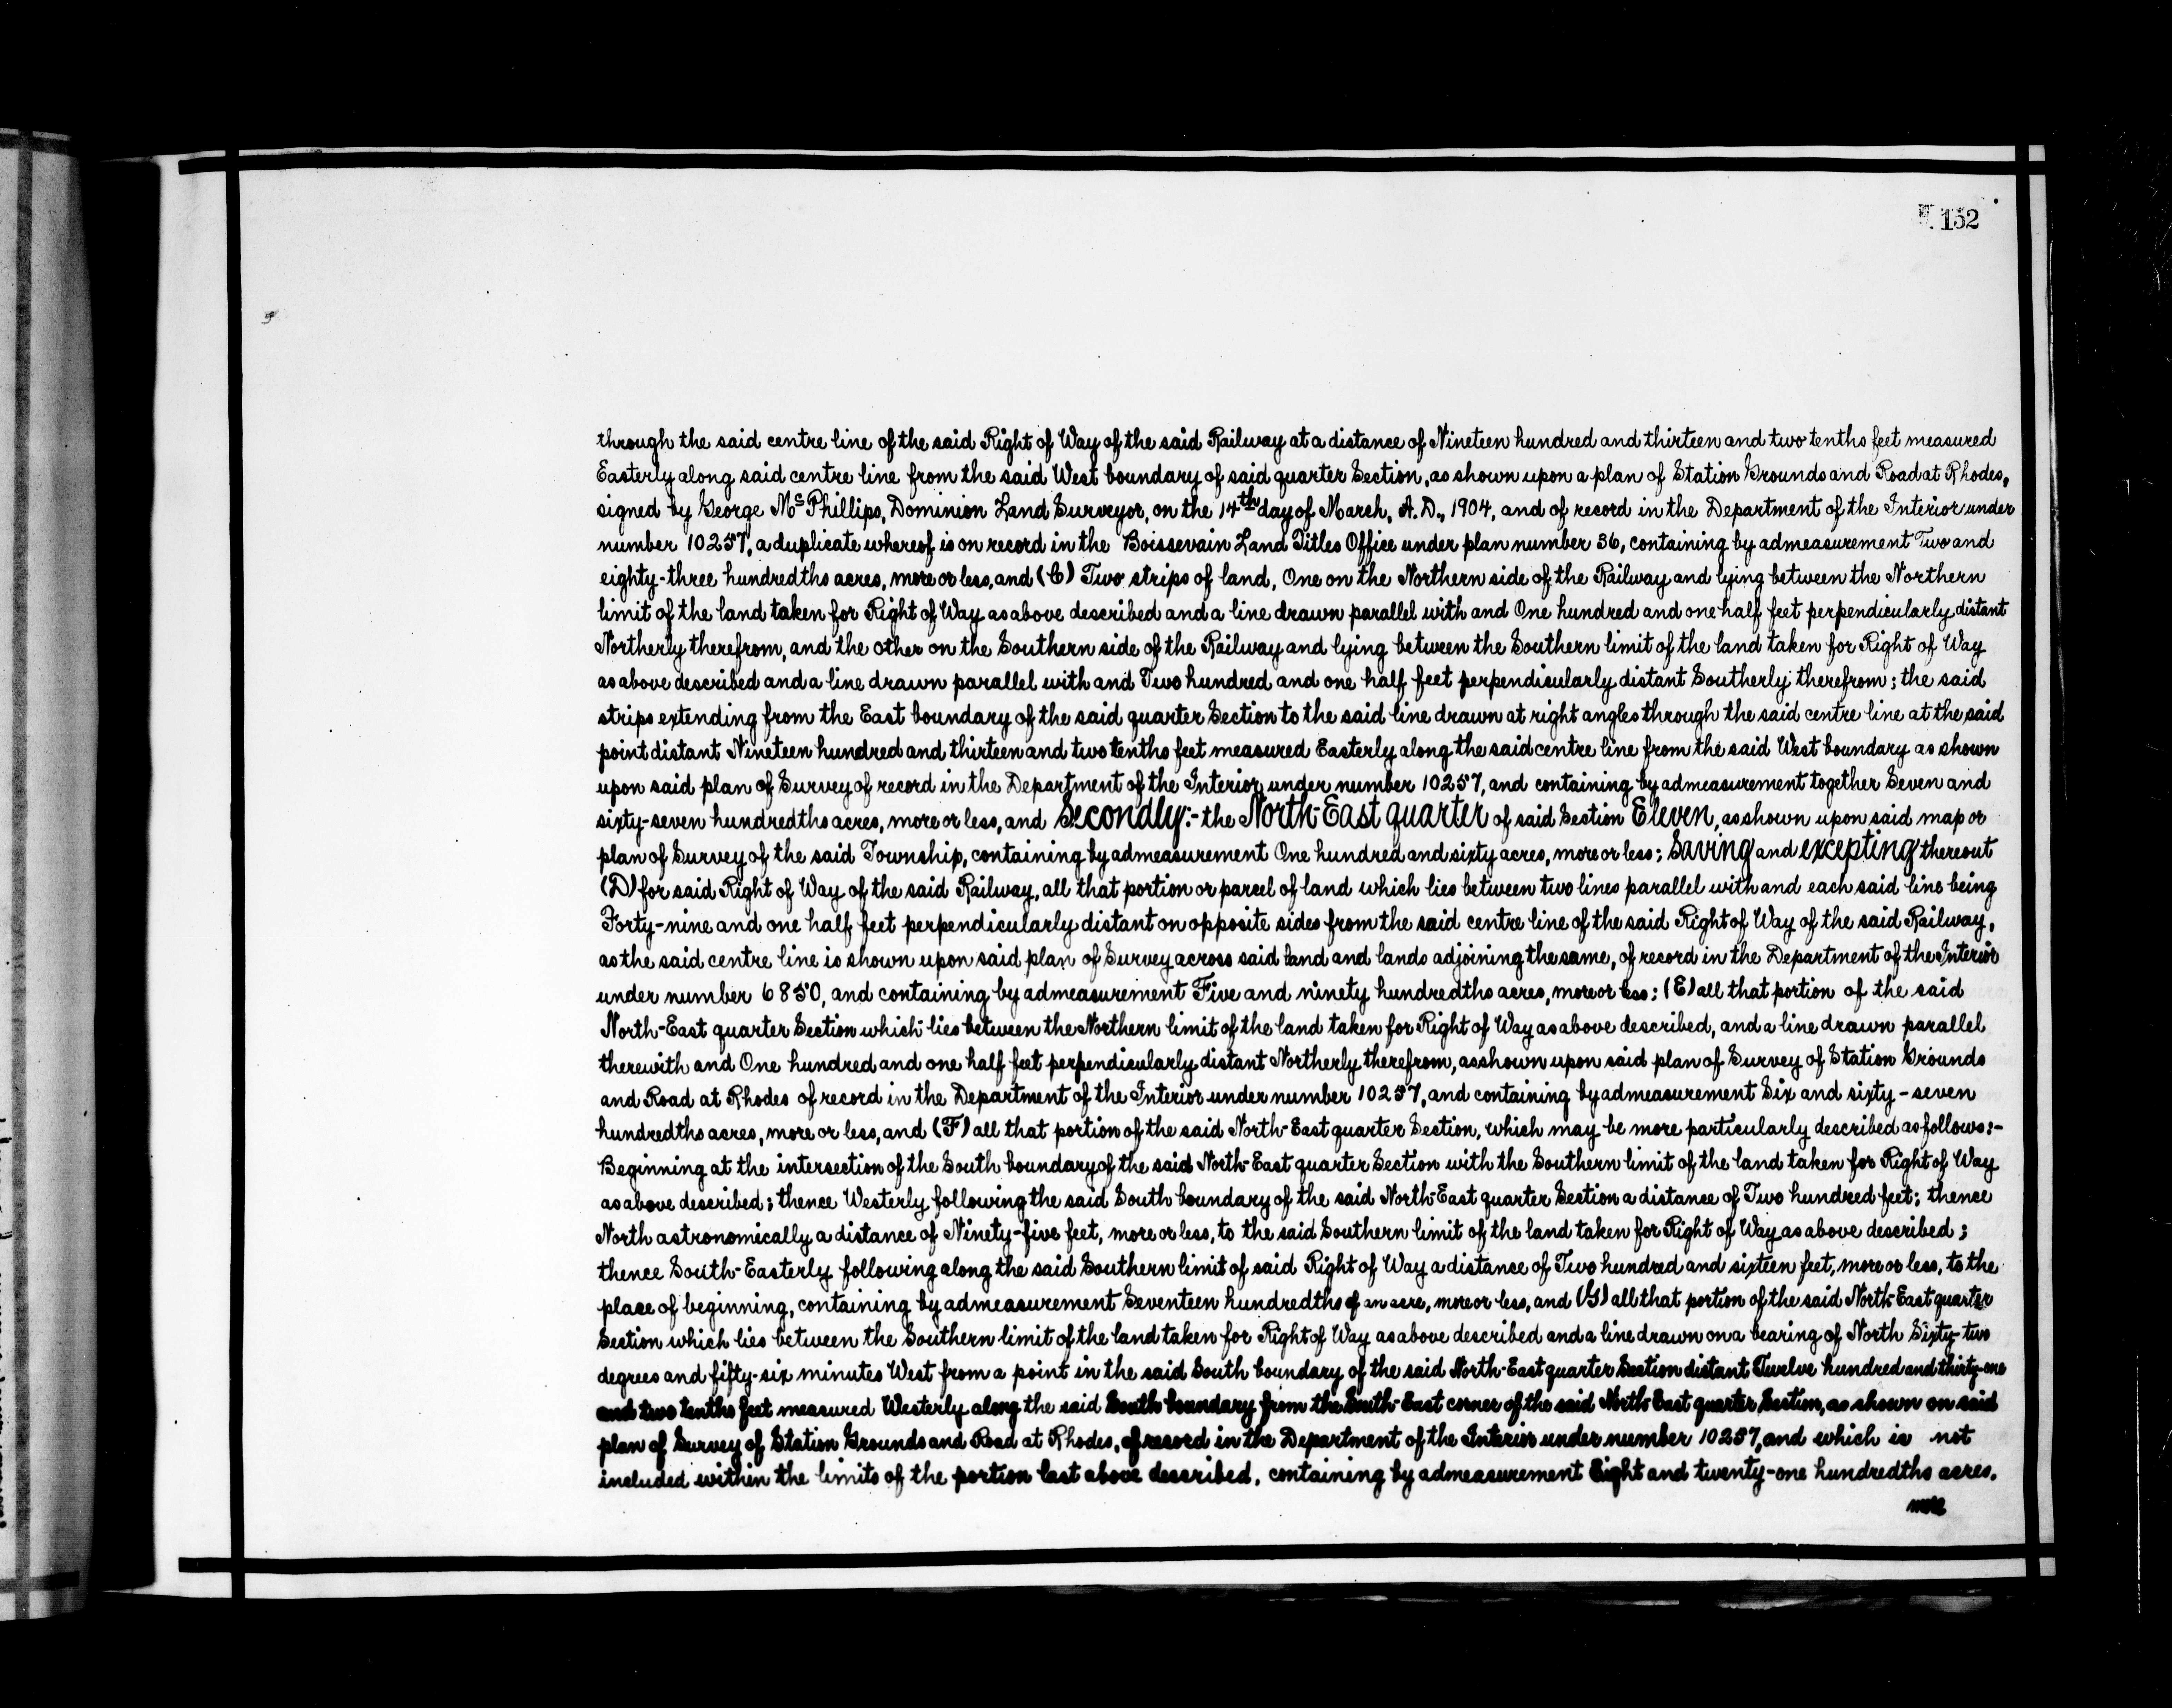 152
through the said centre line of the said Right of Way of the said Railway at a distance of Nineteen hundred and thirteen and two tenths feet measured
Easterly along said centre line from the said West boundary of said quarter Section, as shown upon a plan of Station Grounds and Road at Rhodes,
signed by George McPhillips, Dominion Land Surveyor, on the 14th day of March, A.D., 1904, and of record in the Department of the Interior under
number 10257, a duplicate whereof is on record in the Boissevain Land Titles Office under plan number 36, containing by admeasurement Two and
eighty-three hundredths acres, more or less, and (C) Two strips of land, One on the Northern side of the Railway and lying between the Northern
limit of the land taken for Right of Way as above described and a line drawn parallel with and One hundred and one half feet perpendicularly distant
Northerly therefrom, and the other on the Southern side of the Railway and lying between the Southern limit of the land taken for Right of Way
as above described and a line drawn parallel with and Two hundred and one half feet perpendicularly distant Southerly therefrom; the said
strips extending from the East boundary of the said quarter Section to the said line drawn at right angles through the said centre line at the said
point distant Nineteen hundred and thirteen and two tenths feet measured Easterly along the said centre line from the said West boundary as shown
upon said plan of Survey of record in the Department of the Interior under number 10257, and containing by admeasurement together Seven and
sixty-seven hundredths acres, more or less, and Secondly:- the North-East quarter of said Section Eleven, as shown upon said map or
plan of Survey of the said Township, containing by admeasurement One hundred and sixty acres, more or less; Saving and excepting thereout
(D) for said Right of Way of the said Railway, all that portion or parcel of land which lies between two lines parallel with and each said line being
Forty-nine and one half feet perpendicularly distant on opposite sides from the said centre line of the said Right of Way of the said Railway,
as the said centre line is shown upon said plan of Survey across said land and lands adjoining the same, of record in the Department of the Interior
under number 6850, and containing by admeasurement Five and ninety hundredths acres, more or less; (E) all that portion of the said
North-East quarter Section which lies between the Northern limit of the land taken for Right of Way as above described, and a line drawn parallel
therewith and One hundred and one half feet perpendicularly distant Northerly therefrom, as shown upon said plan of Survey of Station Grounds
and Road at Rhodes of record in the Department of the Interior under number 10257, and containing by admeasurement Six and sixty-seven
hundredths acres, more or less, and (F) all that portion of the said North-East quarter Section, which may be more particularly described as follows:-
Beginning at the intersection of the South boundary of the said North-East quarter Section with the Southern limit of the land taken for Right of Way
as above described; thence Westerly following the said South boundary of the said North-East quarter Section a distance of Two hundred feet; thence
North astronomically a distance of Ninety-five feet, more or less, to the said Southern limit of the land taken for Right of Way as above described;
thence South-Easterly following along the said Southern limit of said Right of Way a distance of Two hundred and sixteen feet, more or less, to the
place of beginning, containing by admeasurement Seventeen hundredths of an acre, more or less, and (G) all that portion of the said North-East quarter
Section which lies between the Southern limit of the land taken for Right of Way as above described and a line drawn on a bearing of North Sixty-two
degrees and fifty-six minutes West from a point in the said South boundary of the said North-East quarter Section distant Twelve hundred and thirty-one
and two tenths feet measured Westerly along the said South boundary from the South-East corner of the said North-East quarter Section, as shown on said
plan of Survey of Station Grounds and Road at Rhodes, of record in the Department of the Interior under number 10257, and which is not
included within the limits of the portion last above described, containing by admeasurement Eight and twenty-one hundredths acres,
more